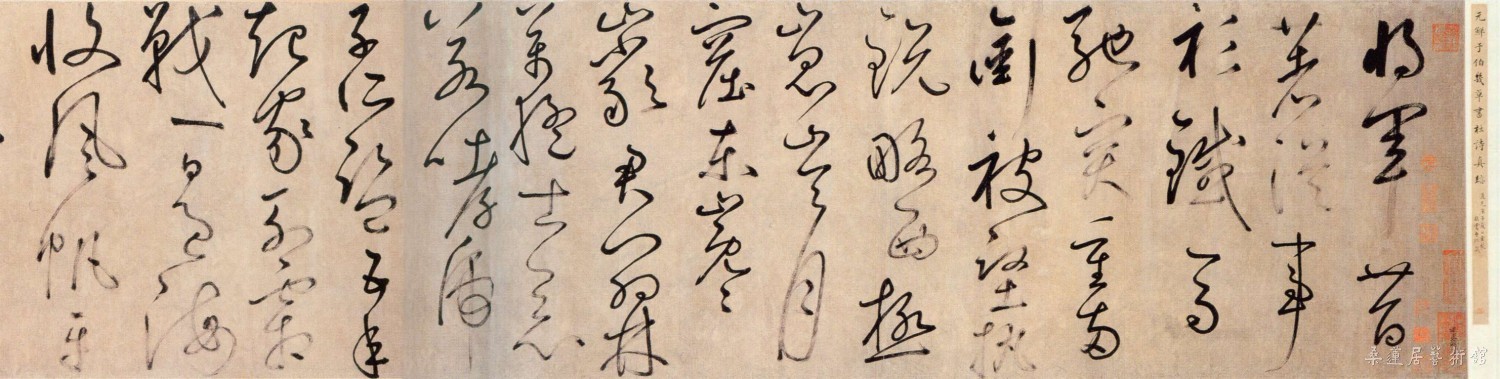 元鮮于伯幾草書杜詩真蹟
將軍昔
著從事
衫鐵馬
馳突重兩
銜被堅執
銳略西極
崑崙月
窟東嶄
巖君門羽林
萬猛士惡
若哮虎
子所監五年
起家列霜
戟一日過海
收風帆平
桑蓮居藝術館